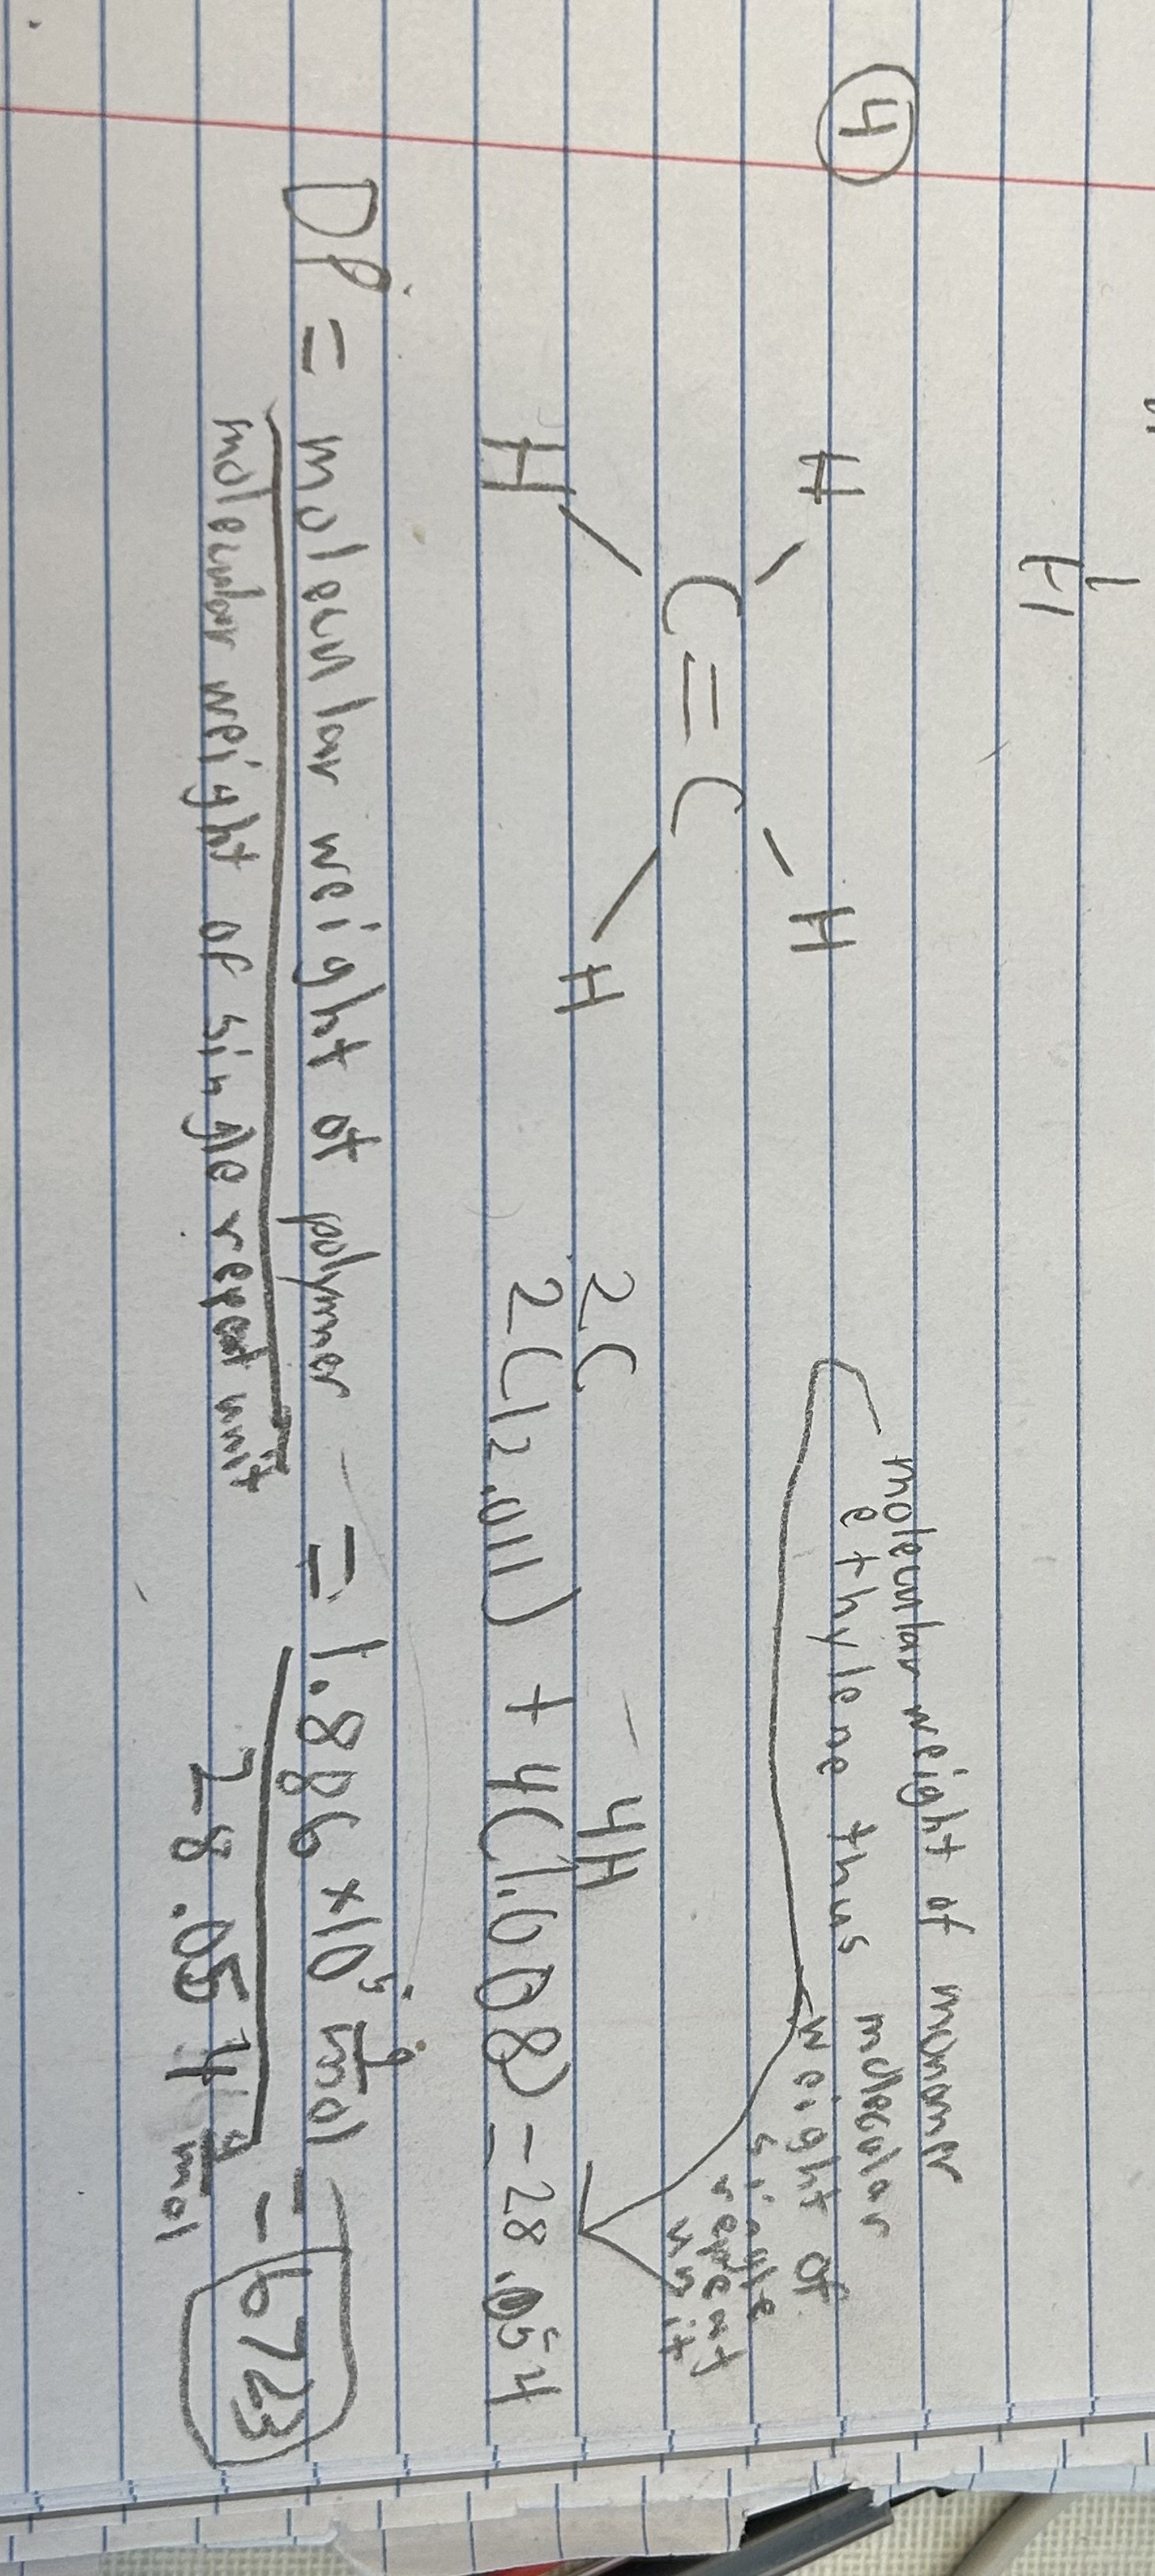 H
④
molecular weight of monomer
ethylene thus molecular
weight of
single
repeat
unit
H H
C=C
H H
2C 4H
2(12.011) + 4(1.008) = 28.054
DP = molecular weight of polymer = 1.886 × 10⁵ g/mol = 6723
molecular weight of single repeat unit 28.054 g/mol